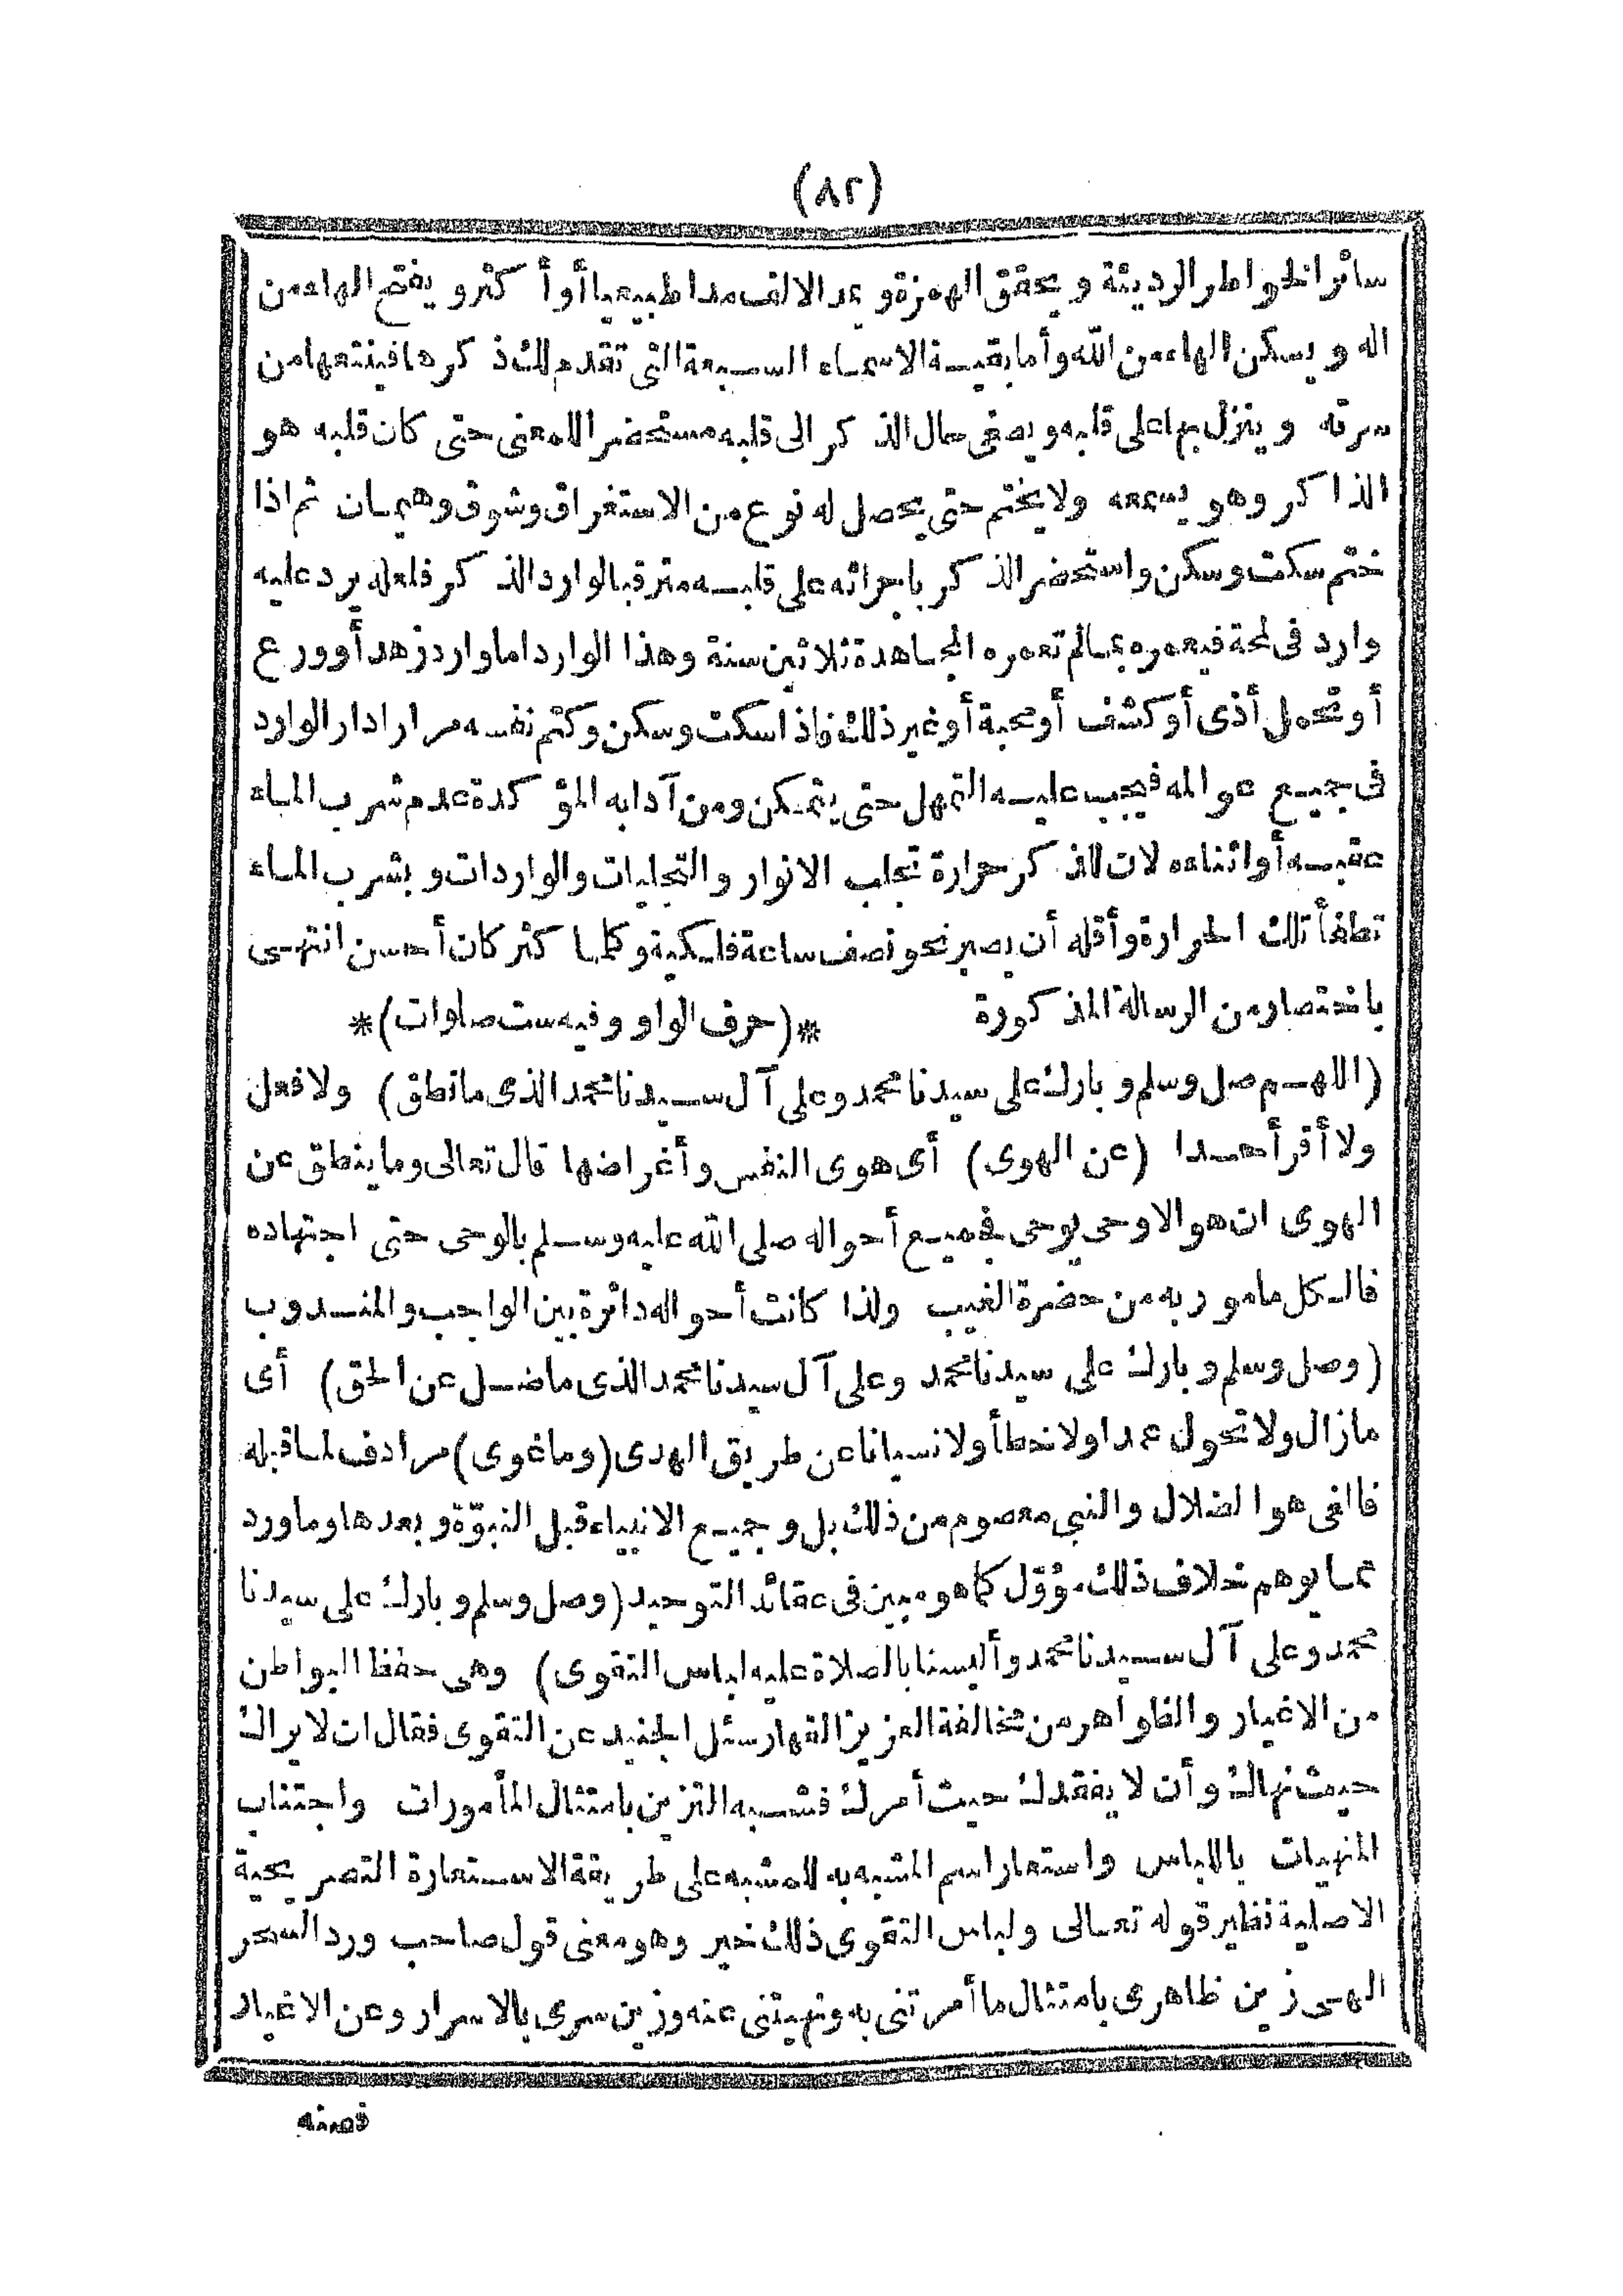 (٨٢)
سائر الخواطر الرديئة ويحقق الهمزة ويمد الالف مدا طبيعيا أو أكثر ويفتح الهاء من
اله ويسكن الهاء من الله وأما بقيـة الاسمـاء السـبعة التى تقدم لك ذكرها فينتعها من
سرته وينزل بها على قلبه ويصغى حال الذكر الى قلبه مستحضرا للمعنى حتى كان قلبه هو
الذاكر وهو يسمعه ولا يختم حتى يحصل له نوع من الاستغراق وشوق وهيمـان ثم اذا
ختم سكت وسكن واستحضر الذكر باجرائه على قلبـه مترقبا لوارد الذكر فلعله يرد عليه
وارد فى لمحة فيعمره بمـا لم تعمره المجـاهدة ثلاثين سنة وهذا الوارد اما وارد زهد أو ورع
أو تحمل أذى أو كشف أو محبة أو غير ذلك فاذا سكت وسكن وكتم نفسـه مرارا دار الوارد
فى جميـع عوالمه فيجب عليـه التمهل حتى يتمـكن ومن آدابه المؤكدة عدم شرب المـاء
عقبـه أو اثناءه لان للذكر حرارة تجلب الانوار والتجليات والواردات وبشرب المـاء
تطفأ تلك الحرارة وأقله أن يصبر نحو نصف ساعة فلـكية وكلمـا كثر كان أحسن انتهـى
باختصار من الرسالة المذكورة *(حرف الواو وفيه ست صلوات)*
(اللهـم صل وسلم وبارك على سيدنا محمد وعلى آل سـيدنا محمد الذى ما نطق) ولا فعل
ولا أقر أحـدا (عن الهوى) أى هوى النفس وأغراضها قال تعالى وما ينطق عن
الهوى ان هو الا وحى يوحى فجميـع أحواله صلى الله عليه وسـلم بالوحى حتى اجتهاده
فالـكل مأمور به من حضرة الغيب ولذا كانت أحواله دائرة بين الواجب والمنـدوب
(وصل وسلم وبارك على سيدنا محمد وعلى آل سيدنا محمد الذى ما ضـل عن الحق) أى
ما زال ولا تحول عمدا ولا خطأ ولا نسيانا عن طريق الهدى (وما غوى) مرادف لمـا قبله
فالغى هو الضلال والنبى معصوم من ذلك بل وجميـع الانبياء قبل النبوّة وبعدها وما ورد
ممـا يوهم خلاف ذلك مؤوّل كما هو مبين فى عقائد التوحيد (وصل وسلم وبارك على سيدنا
محمد وعلى آل سـيدنا محمد وألبسنا بالصلاة عليه لباس التقوى) وهى حفظ البواطن
من الاغيار والظواهر من مخالفة العزيز القهار سئل الجنيد عن التقوى فقال ان لا يراك
حيث نهاك وأن لا يفقدك حيث أمرك فشـبه التزين بامتثال المأمورات واجتناب
المنهيات باللباس واستعار اسم المشبه به للمشبه على طريقة الاسـتعارة التصريحية
الاصلية نظير قوله تعـالى ولباس التقوى ذلك خير وهو معنى قول صاحب ورد السحر
الهـى زين ظاهرى بامتثال ما أمرتنى به ونهيتنى عنه وزين سرى بالاسرار وعن الاغيار
فصنه